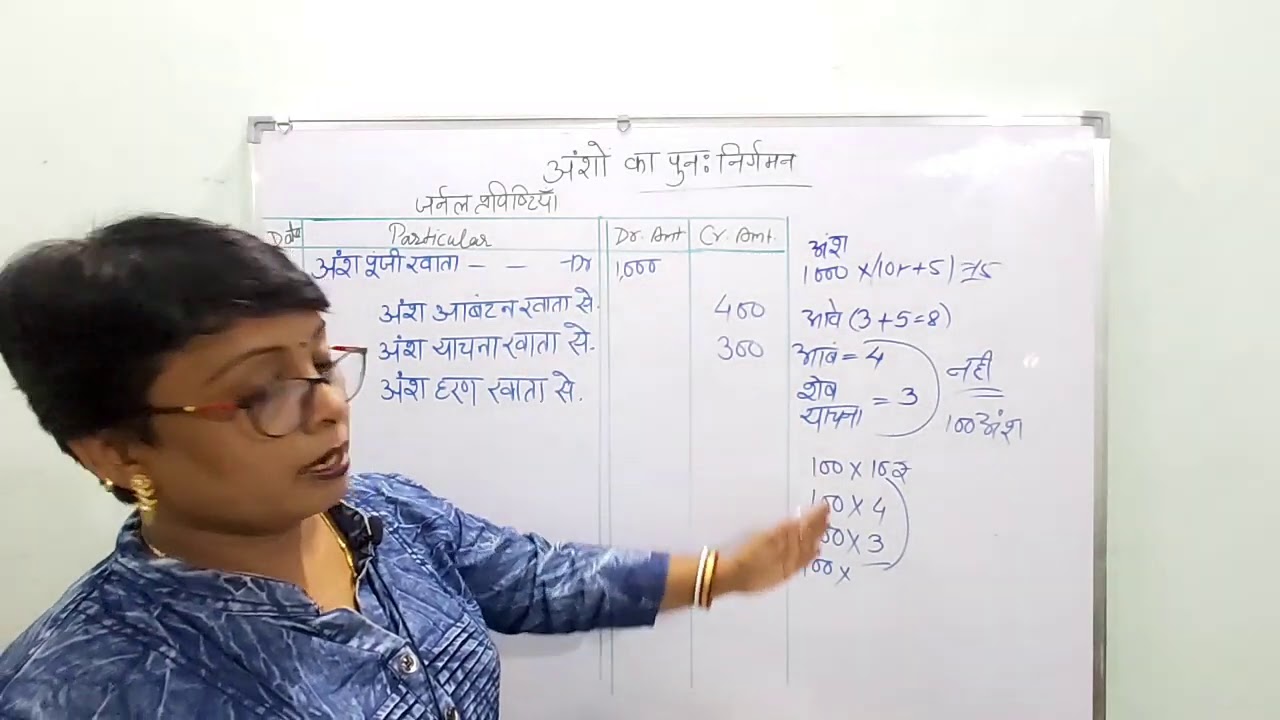 अंशो का पुनः निर्गमन
जर्नल प्रविष्टियाँ
Date Particular Dr. Amt Cr. Amt.
अंश पूंजी खाता - - Dr 1,000
अंश आबंटन खाता से. 400
अंश याचना खाता से. 300
अंश हरण खाता से.
अंश
1000 x (10r + 5) = 15
आवे (3 + 5 = 8)
आबं = 4
शेष याचना = 3
नही
100 अंश
100 x 10 ₹
100 x 4
100 x 3
100 x